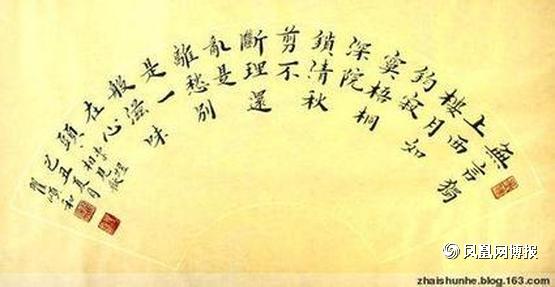 無言獨
上西
樓月如
鉤寂
寞梧桐
深院
鎖清秋
剪不
斷理還
亂是
離愁別
是一
般滋味
在心
頭
李煜
相見歡
己丑夏月
翟順和
凤凰网博报
zhaishunhe.blog.163.com